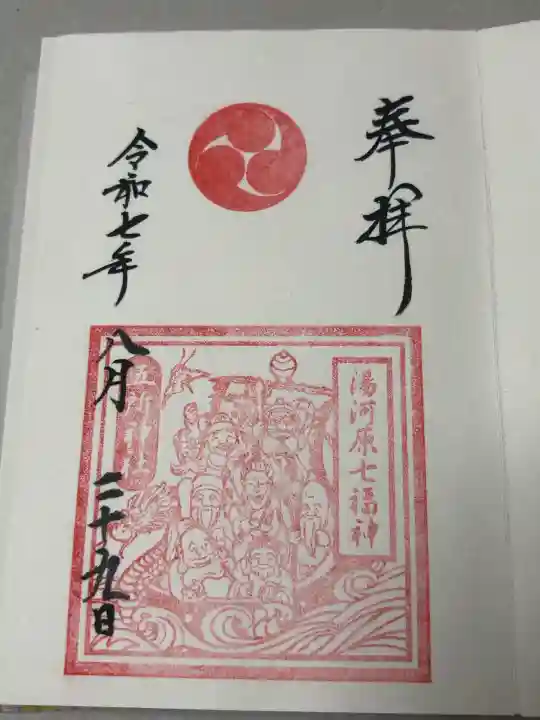 奉拝
湯河原七福神
五所神社
令和七年
八月
二十九日